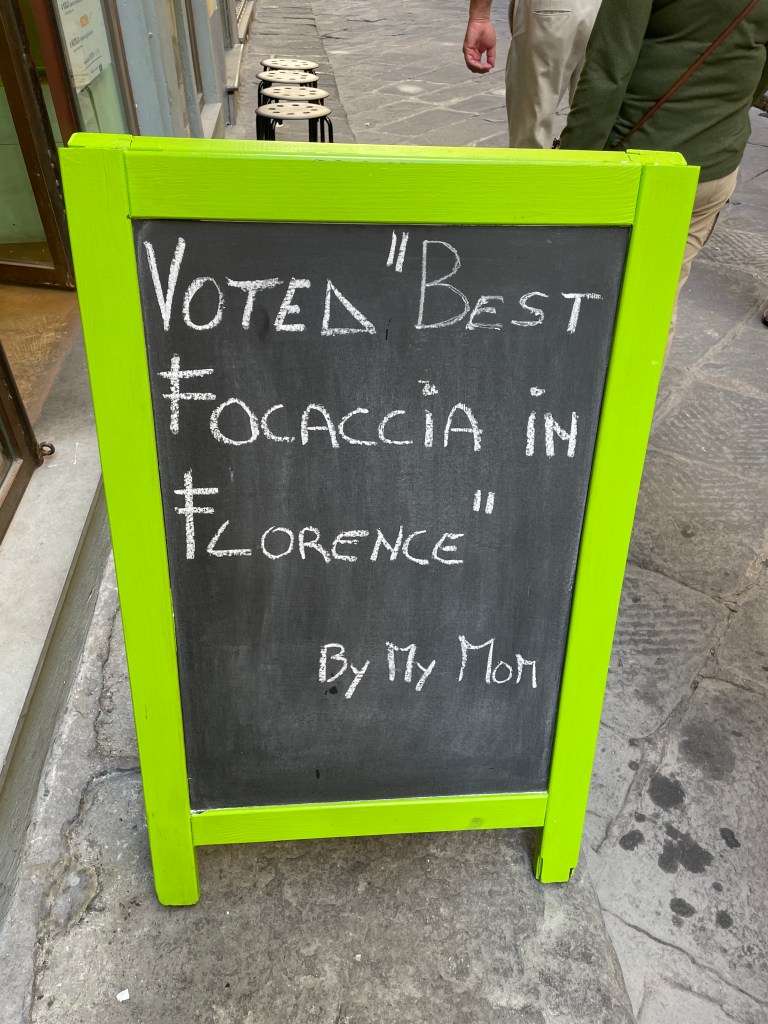 VOTED "BEST
FOCACCIA IN
FLORENCE"
BY MY MOM